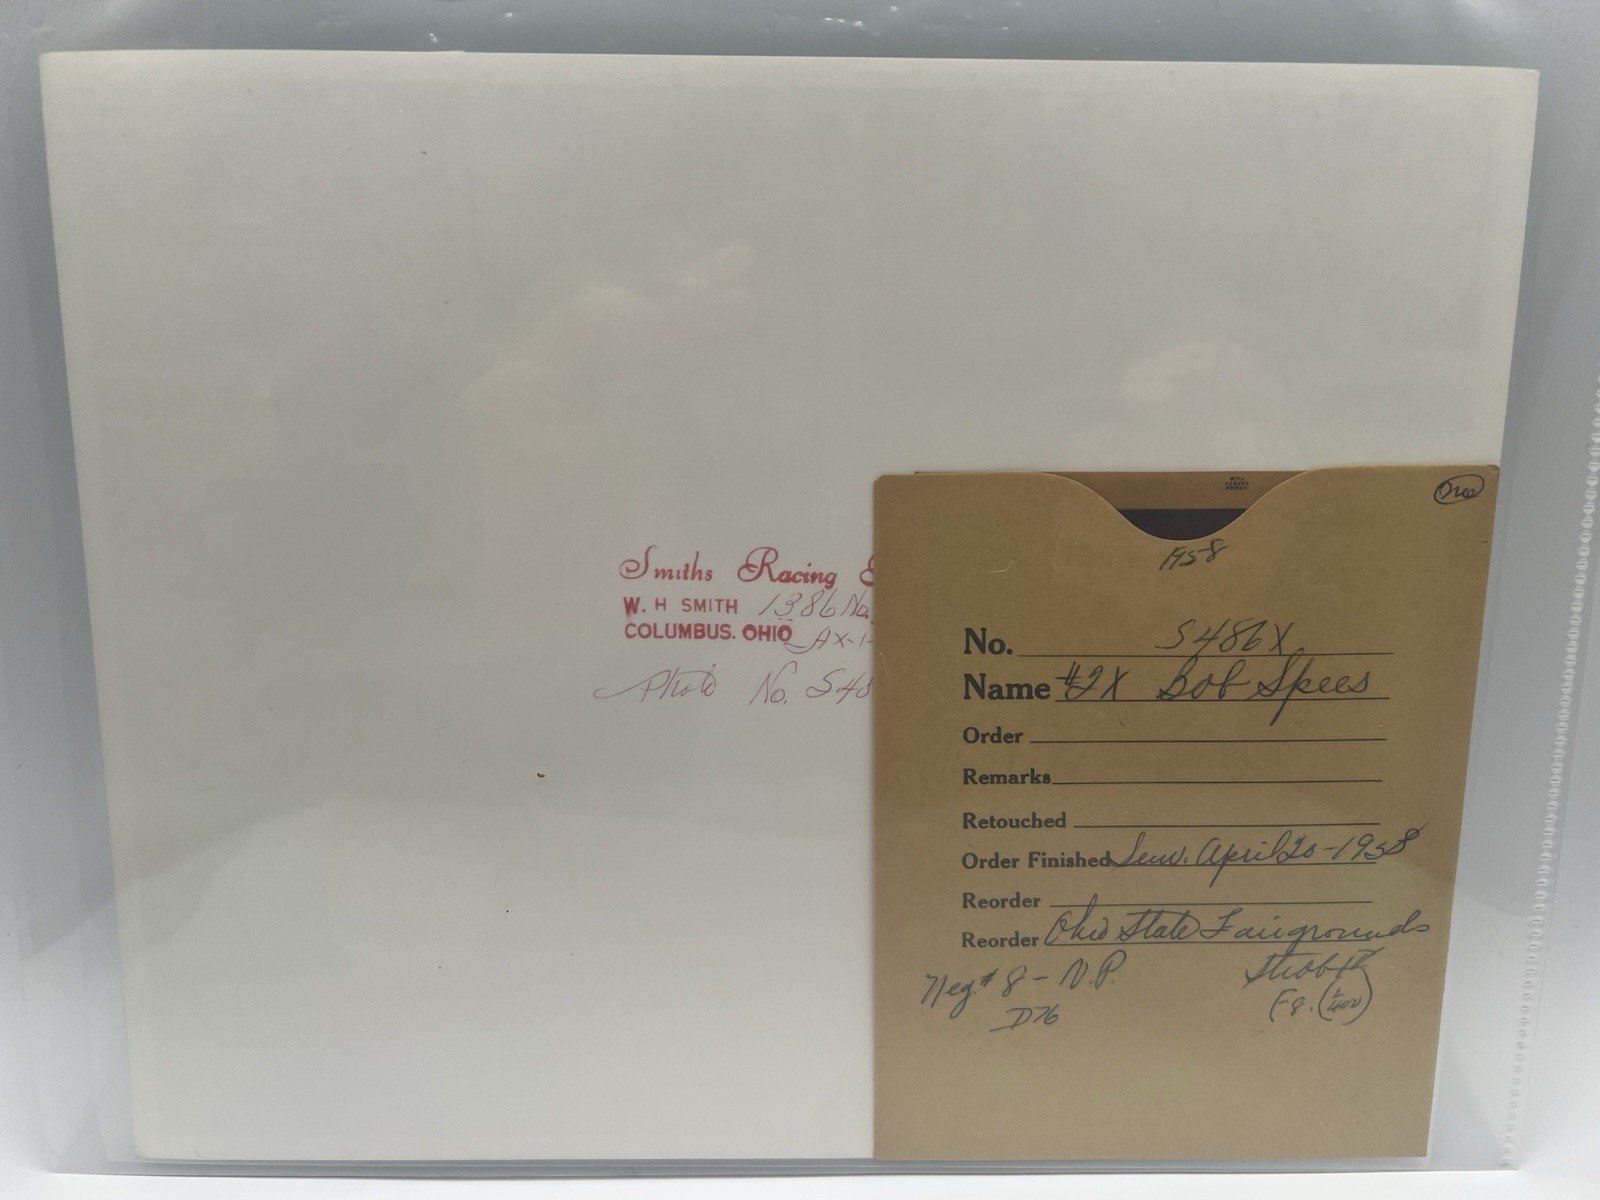 Smiths Racing
W. H SMITH 1386 No.
COLUMBUS. OHIO AX-1-
Photo No. S48
1958
No. S486X
Name #2X Bob Spees
Order
Remarks
Retouched
Order Finished Sun. April 20-1958
Reorder
Reorder Ohio State Fairgrounds
Neg.# 8 - N.P.
D76
F8.